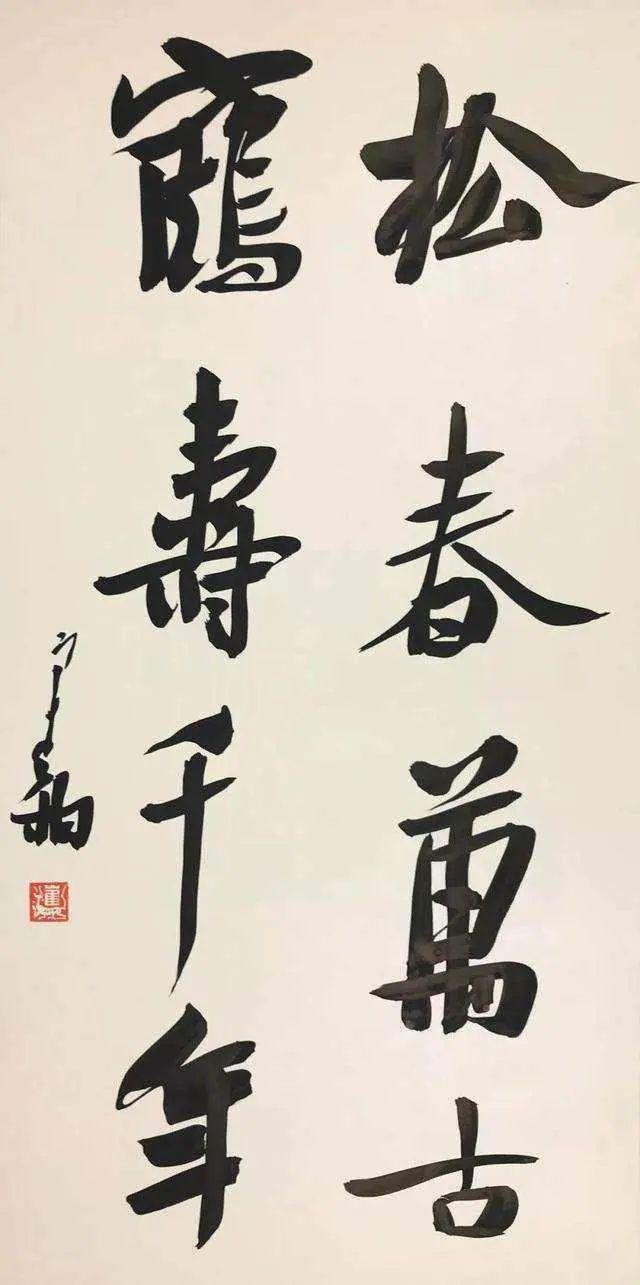 松春萬古
鶴壽千年